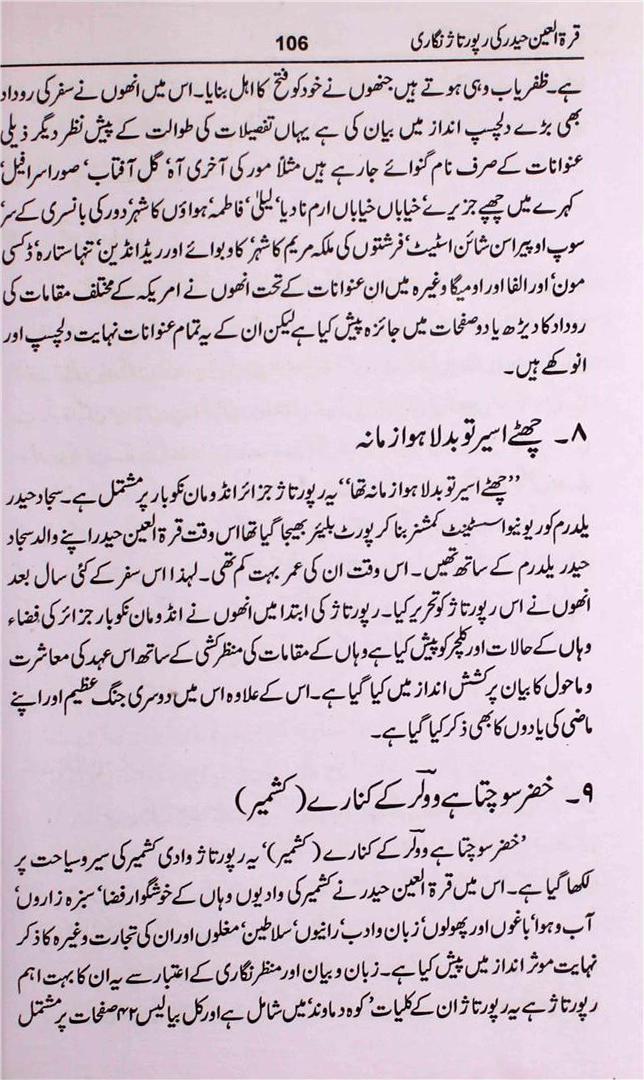 قرۃ العین حیدر کی رپورتاژ نگاری
106
ہے۔ ظفریاب وہی ہوتے ہیں جنھوں نے خود کو فتح کا اہل بنایا۔ اس میں انھوں نے سفر کی روداد
بھی بڑے دلچسپ انداز میں بیان کی ہے یہاں تفصیلات کی طوالت کے پیش نظر دیگر ذیلی
عنوانات کے صرف نام گنوائے جارہے ہیں مثلاً مور کی آخری آہ‘ گل آفتاب‘ صور اسرافیل‘
کہرے میں چھپے جزیرے‘ خیاباں خیاباں ارم نادیا‘ لیلیٰ‘ فاطمہ‘ ہواؤں کا شہر‘ دور کی بانسری کے سر‘
سوپ اوپیرا سن شائن اسٹیٹ‘ فرشتوں کی ملکہ مریم کا شہر‘ کاوبوائے اور ریڈ انڈین‘ تنہا ستارہ‘ ڈکسی
مون‘ اور الفا اور اومیگا وغیرہ میں ان عنوانات کے تحت انھوں نے امریکہ کے مختلف مقامات کی
روداد کا دیڑھ یا دو صفحات میں جائزہ پیش کیا ہے لیکن ان کے یہ تمام عنوانات نہایت دلچسپ اور
انوکھے ہیں۔
۸۔ چھٹے اسیر تو بدلا ہوا زمانہ
’’چھٹے اسیر تو بدلا ہوا زمانہ تھا‘‘ یہ رپورتاژ جزائر انڈومان نکوبار پر مشتمل ہے۔ سجاد حیدر
یلدرم کو ریونیو اسسٹینٹ کمشنر بنا کر پورٹ بلیئر بھیجا گیا تھا اس وقت قرۃ العین حیدر اپنے والد سجاد
حیدر یلدرم کے ساتھ تھیں۔ اس وقت ان کی عمر بہت کم تھی۔ لہذا اس سفر کے کئی سال بعد
انھوں نے اس رپورتاژ کو تحریر کیا۔ رپورتاژ کی ابتدا میں انھوں نے انڈومان نکوبار جزائر کی فضاء
وہاں کے حالات اور کلچر کو پیش کیا ہے وہاں کے مقامات کی منظر کشی کے ساتھ اس عہد کی معاشرت
و ماحول کا بیان پرکشش انداز میں کیا گیا ہے۔ اس کے علاوہ اس میں دوسری جنگ عظیم اور اپنے
ماضی کی یادوں کا بھی ذکر کیا گیا ہے۔
۹۔ خضر سوچتا ہے وولر کے کنارے (کشمیر)
’خضر سوچتا ہے وولر کے کنارے (کشمیر)‘ یہ رپورتاژ وادی کشمیر کی سیر و سیاحت پر
لکھا گیا ہے۔ اس میں قرۃ العین حیدر نے کشمیر کی وادیوں وہاں کے خوشگوار فضا‘ سبزہ زاروں‘
آب و ہوا‘ باغوں اور پھولوں‘ زبان و ادب‘ رانیوں‘ سلاطین‘ مغلوں اور ان کی تجارت وغیرہ کا ذکر
نہایت موثر انداز میں پیش کیا ہے۔ زبان و بیان اور منظر نگاری کے اعتبار سے یہ ان کا بہت اہم
رپورتاژ ہے یہ رپورتاژ ان کے کلیات ’کوہ دماوند‘ میں شامل ہے اور کل بیالیس ۴۲ صفحات پر مشتمل